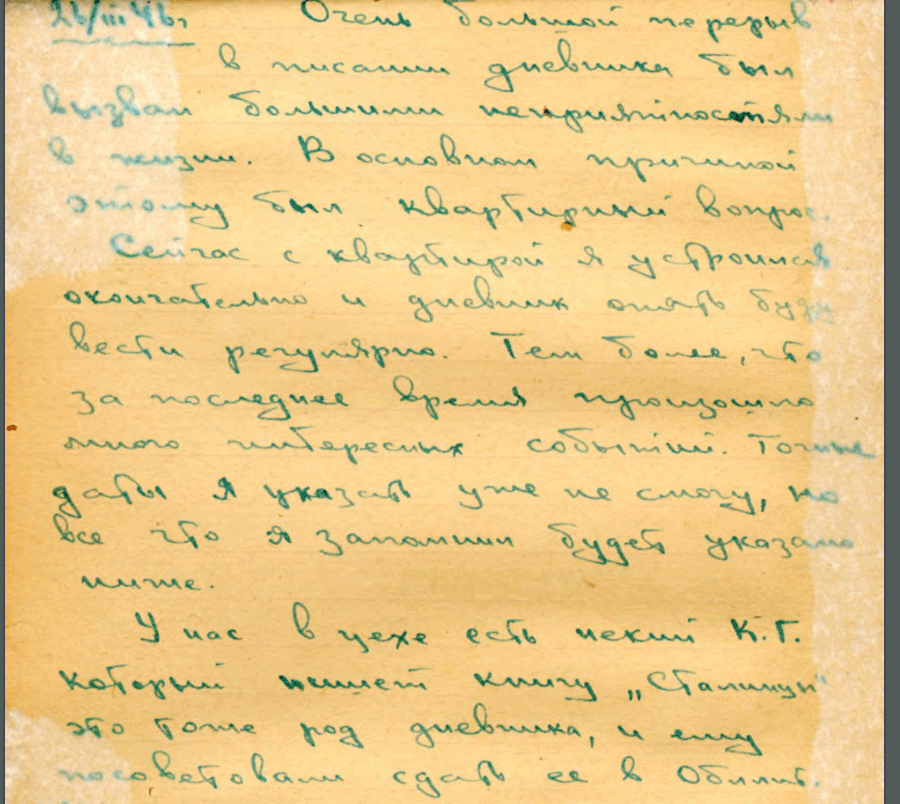 26/III 46г Очень большой перерыв
в писании дневника был
вызван большими неприятностями
в жизни. В основном причиной
этому был квартирный вопрос.
Сейчас с квартирой я устроился
окончательно и дневник опять буду
вести регулярно. Тем более, что
за последнее время произошло
много интересных событий. Точные
даты я указать уже не смогу, но
все что я запомнил будет указано
ниже.
У нас в цехе есть некий К.Г.
который пишет книгу
это тоже род дневника, и ему
посоветовали сдать ее в Обллит.